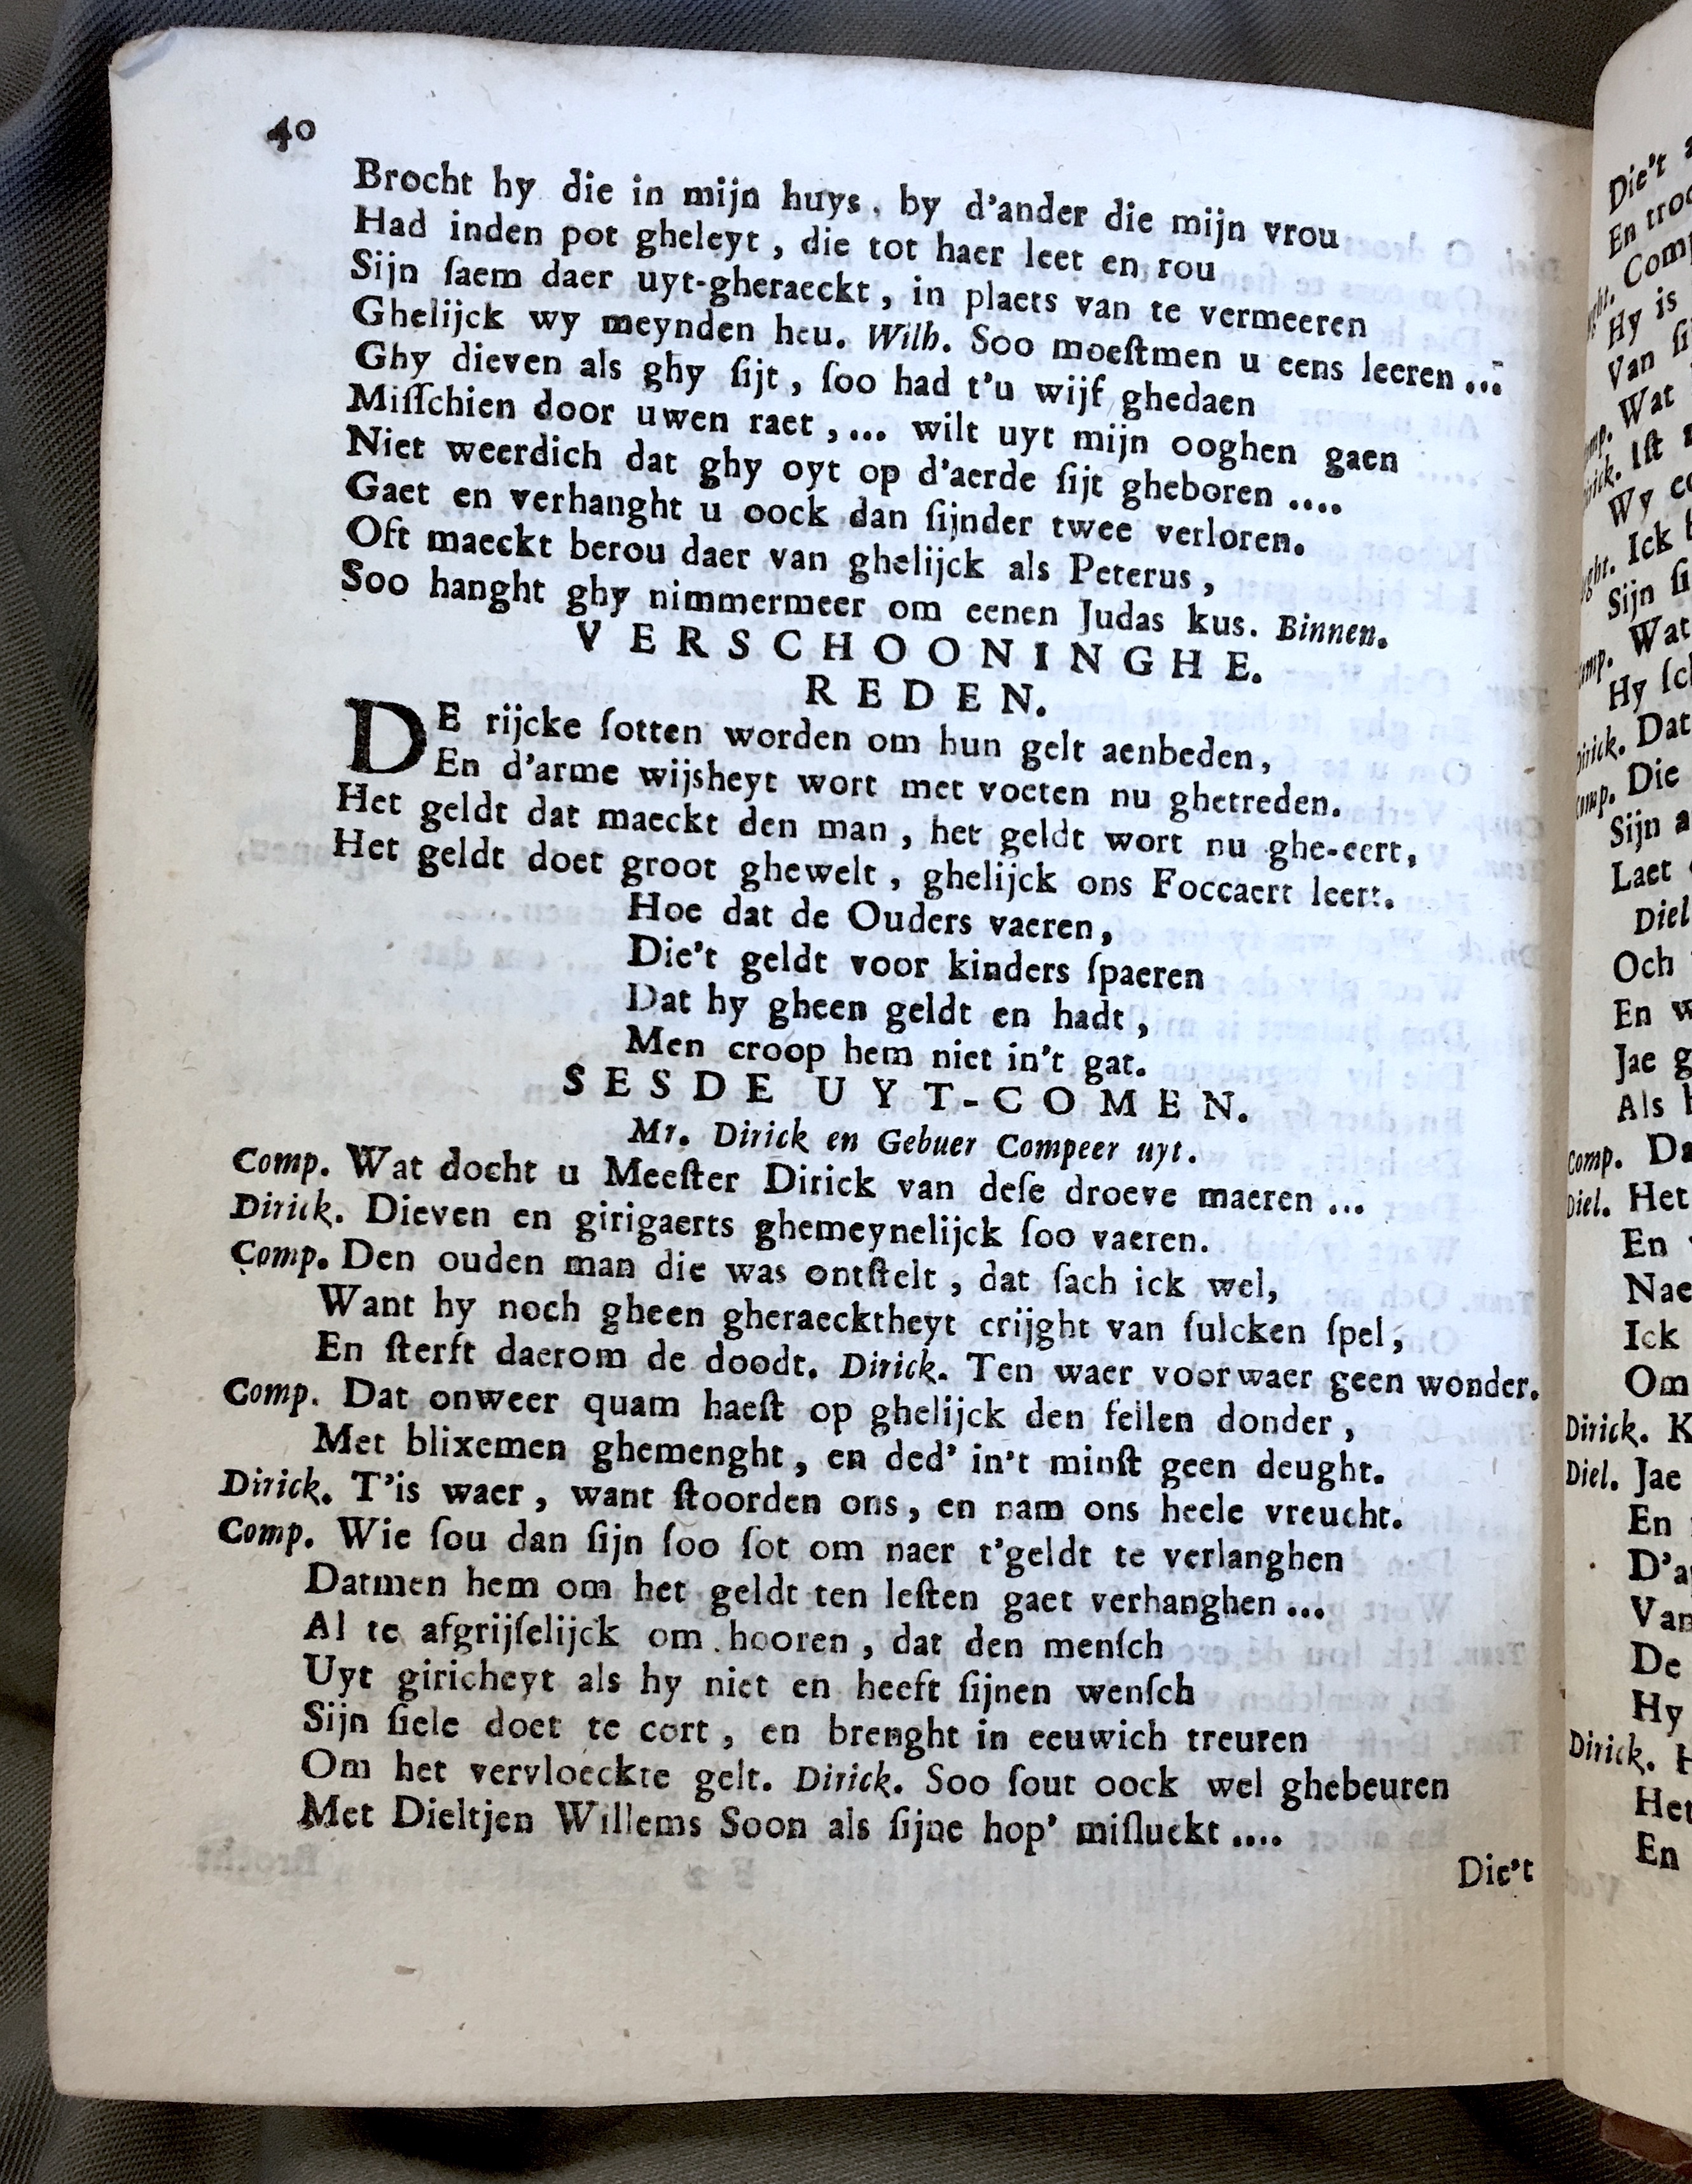 40
Brocht hy die in mijn huys, by d'ander die mijn vrou
Had inden pot gheleyt, die tot haer leet en rou
Sijn ſaem daer uyt-gheraeckt, in plaets van te vermeeren
Ghelijck wy meynden heu. Wilh. Soo moeſtmen u eens leeren ...
Ghy dieven als ghy ſijt, ſoo had t'u wijf ghedaen
Miſſchien door uwen raet, ... wilt uyt mijn ooghen gaen
Niet weerdich dat ghy oyt op d'aerde ſijt gheboren ....
Gaet en verhanght u oock dan ſijnder twee verloren.
Oft maeckt berou daer van ghelijck als Peterus,
Soo hanght ghy nimmermeer om eenen Judas kus. Binnen.
VERSCHOONINGHE.
REDEN.
DE rijcke ſotten worden om hun gelt aenbeden,
En d'arme wijsheyt wort met voeten nu ghetreden.
Het geldt dat maeckt den man, het geldt wort nu ghe-eert,
Het geldt doet groot ghewelt, ghelijck ons Foccaert leert.
Hoe dat de Ouders vaeren,
Die't geldt voor kinders ſpaeren
Dat hy gheen geldt en hadt,
Men croop hem niet in't gat.
SESDE UYT-COMEN.
Mr. Dirick en Gebuer Compeer uyt.
Comp. Wat docht u Meeſter Dirick van deſe droeve maeren ...
Dirick. Dieven en girigaerts ghemeynelijck ſoo vaeren.
Comp. Den ouden man die was ontſtelt, dat ſach ick wel,
Want hy noch gheen gheraecktheyt crijght van ſulcken ſpel,
En ſterft daerom de doodt. Dirick. Ten waer voorwaer geen wonder.
Comp. Dat onweer quam haeſt op ghelijck den fellen donder,
Met blixemen ghemenght, en ded' in't minſt geen deught.
Dirick. T'is waer, want ſtoorden ons, en nam ons heele vreucht.
Comp. Wie ſou dan ſijn ſoo ſot om naer t'geldt te verlanghen
Datmen hem om het geldt ten leſten gaet verhanghen ...
Al te afgrijſelijck om hooren, dat den menſch
Uyt giricheyt als hy niet en heeft ſijnen wenſch
Sijn ſiele doet te cort, en brenght in eeuwich treuren
Om het vervloeckte gelt. Dirick. Soo ſout oock wel ghebeuren
Met Dieltjen Willems Soon als ſijne hop' miſluckt ....
Die't
Die't
En
Hy is
Van
Wat
Iſt
Wy
Ick
Sijn
Wat
Hy
Dirick. Dat
Die
Sijn
Laet
Och
En
Jae
Als
Comp.
Diel. Het
En
Ick
Om
Dirick.
Diel. Jae
En
De
Hy
Dirick.
En